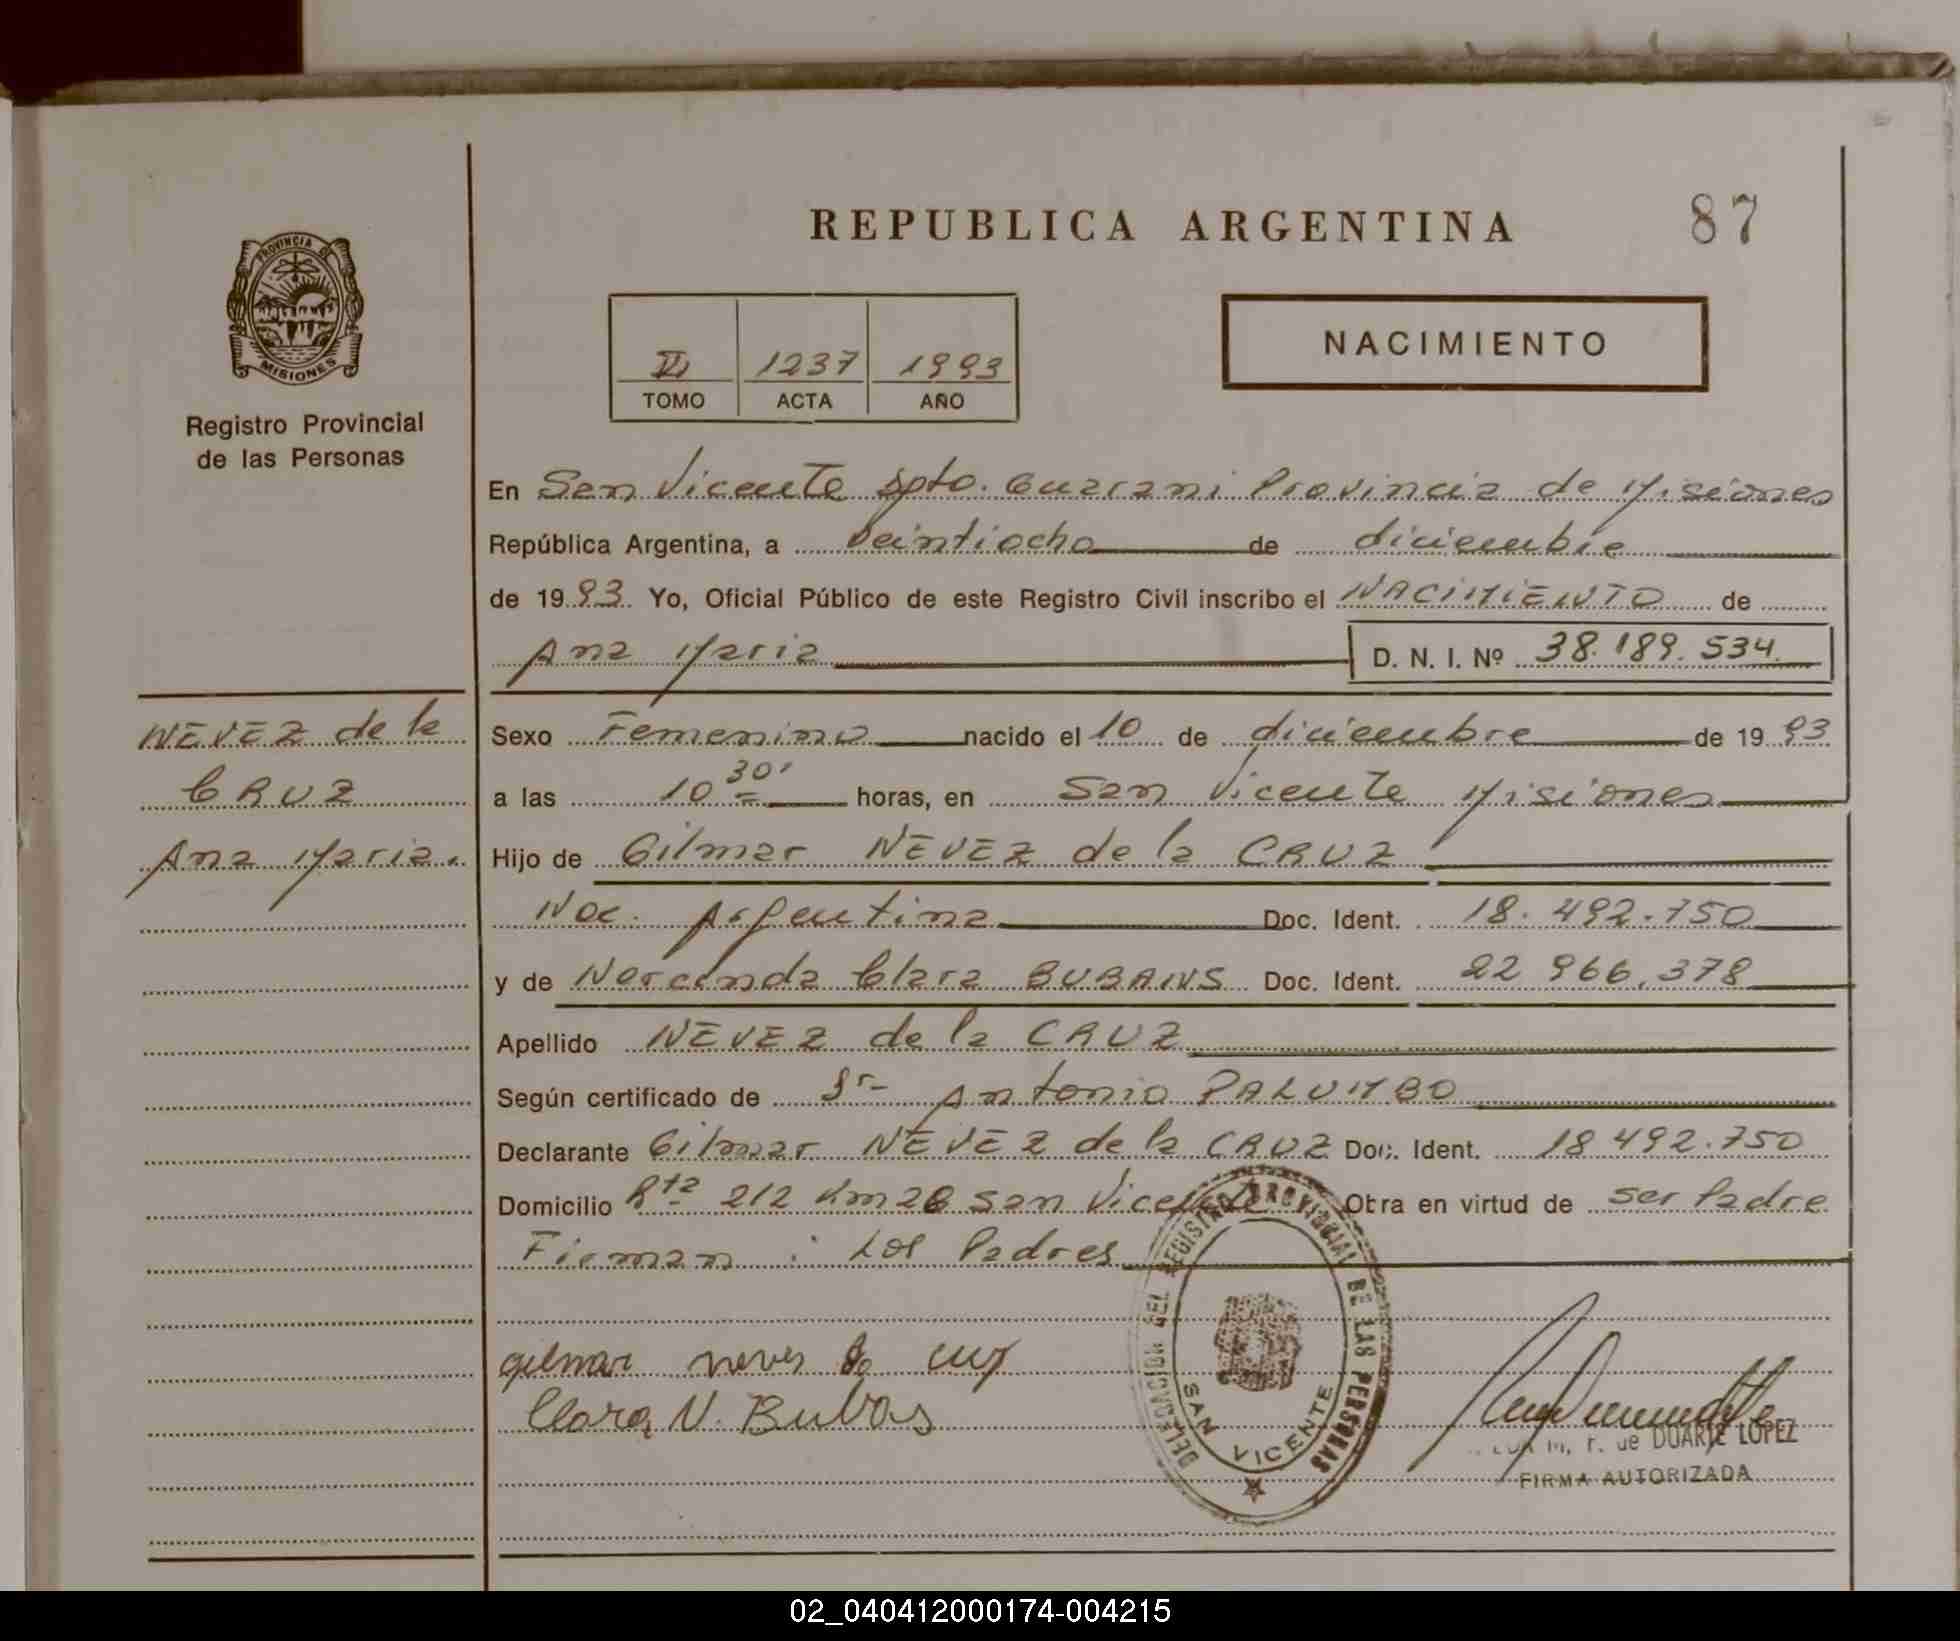 REPUBLICA ARGENTINA
87
PROVINCIA DE
MISIONES
Registro Provincial
de las Personas
NACIMIENTO
II 1237 1993
TOMO ACTA AÑO
En San Vicente Dpto. Guarani Provincia de Misiones
República Argentina, a Veintiocho de diciembre
de 1993. Yo, Oficial Público de este Registro Civil inscribo el NACIMIENTO de
Ana Maria D. N. I. Nº 38.189.534.
NEVEZ de la
CRUZ
Ana Maria.
Sexo Femenino nacido el 10 de diciembre de 1993
a las 10 30' horas, en San Vicente Misiones
Hijo de Gilmar NEVEZ de la CRUZ
Nac. Argentina Doc. Ident. 18.492.750
y de Norcinda Clara BUBANS Doc. Ident. 22 966.378
Apellido NEVEZ de la CRUZ
Según certificado de Dr Antonio PALUMBO
Declarante Gilmar NEVEZ de la CRUZ Doc. Ident. 18 492.750
Domicilio Rta 212 Km 26 San Vicente Obra en virtud de ser Padre
Firman : Los Padres
gilmar neves da cruz
Clara N. Bubas
DELEGACION DEL REGISTRO PROVINCIAL DE LAS PERSONAS
SAN VICENTE
de DUARTE LOPEZ
FIRMA AUTORIZADA
02_040412000174-004215